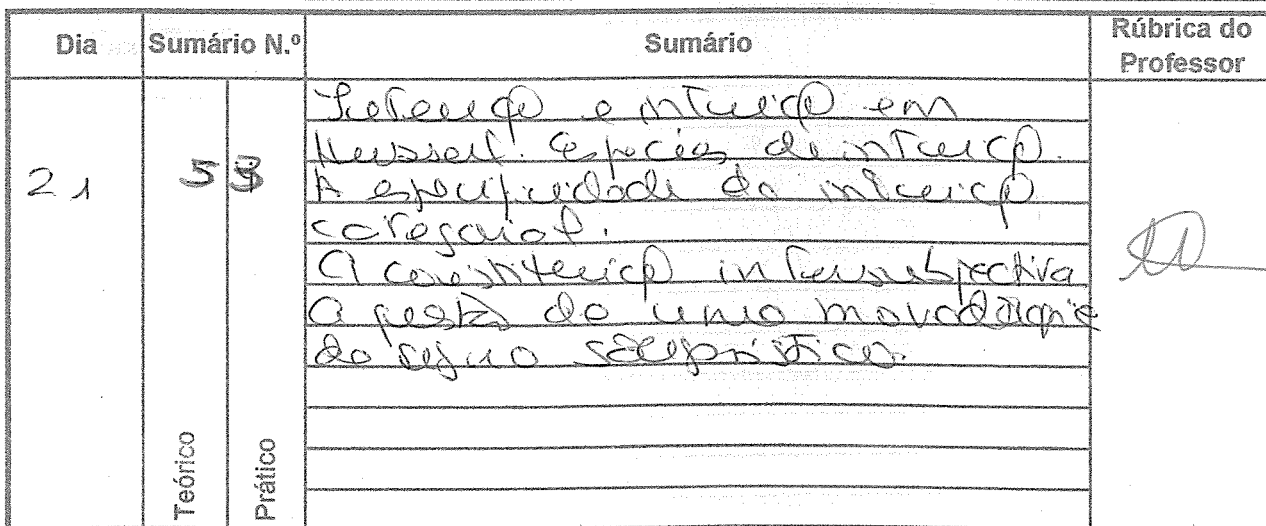 Dia Sumário N.º Sumário Rúbrica do Professor
21 5
Intenção e intuição em
Husserl. Espécies de intuição.
A especificidade da intuição
categorial.
A constituição intersubjectiva
A questão de uma monadologia
solipsística.
Teórico
Prático